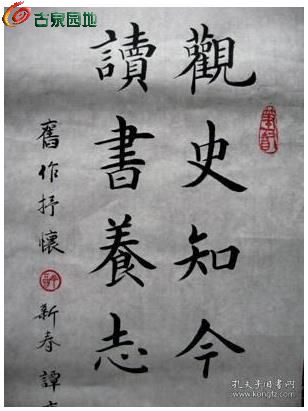 古泉园地
觀史知今
讀書養志
舊作抒懷
新春譚
孔夫子旧书网